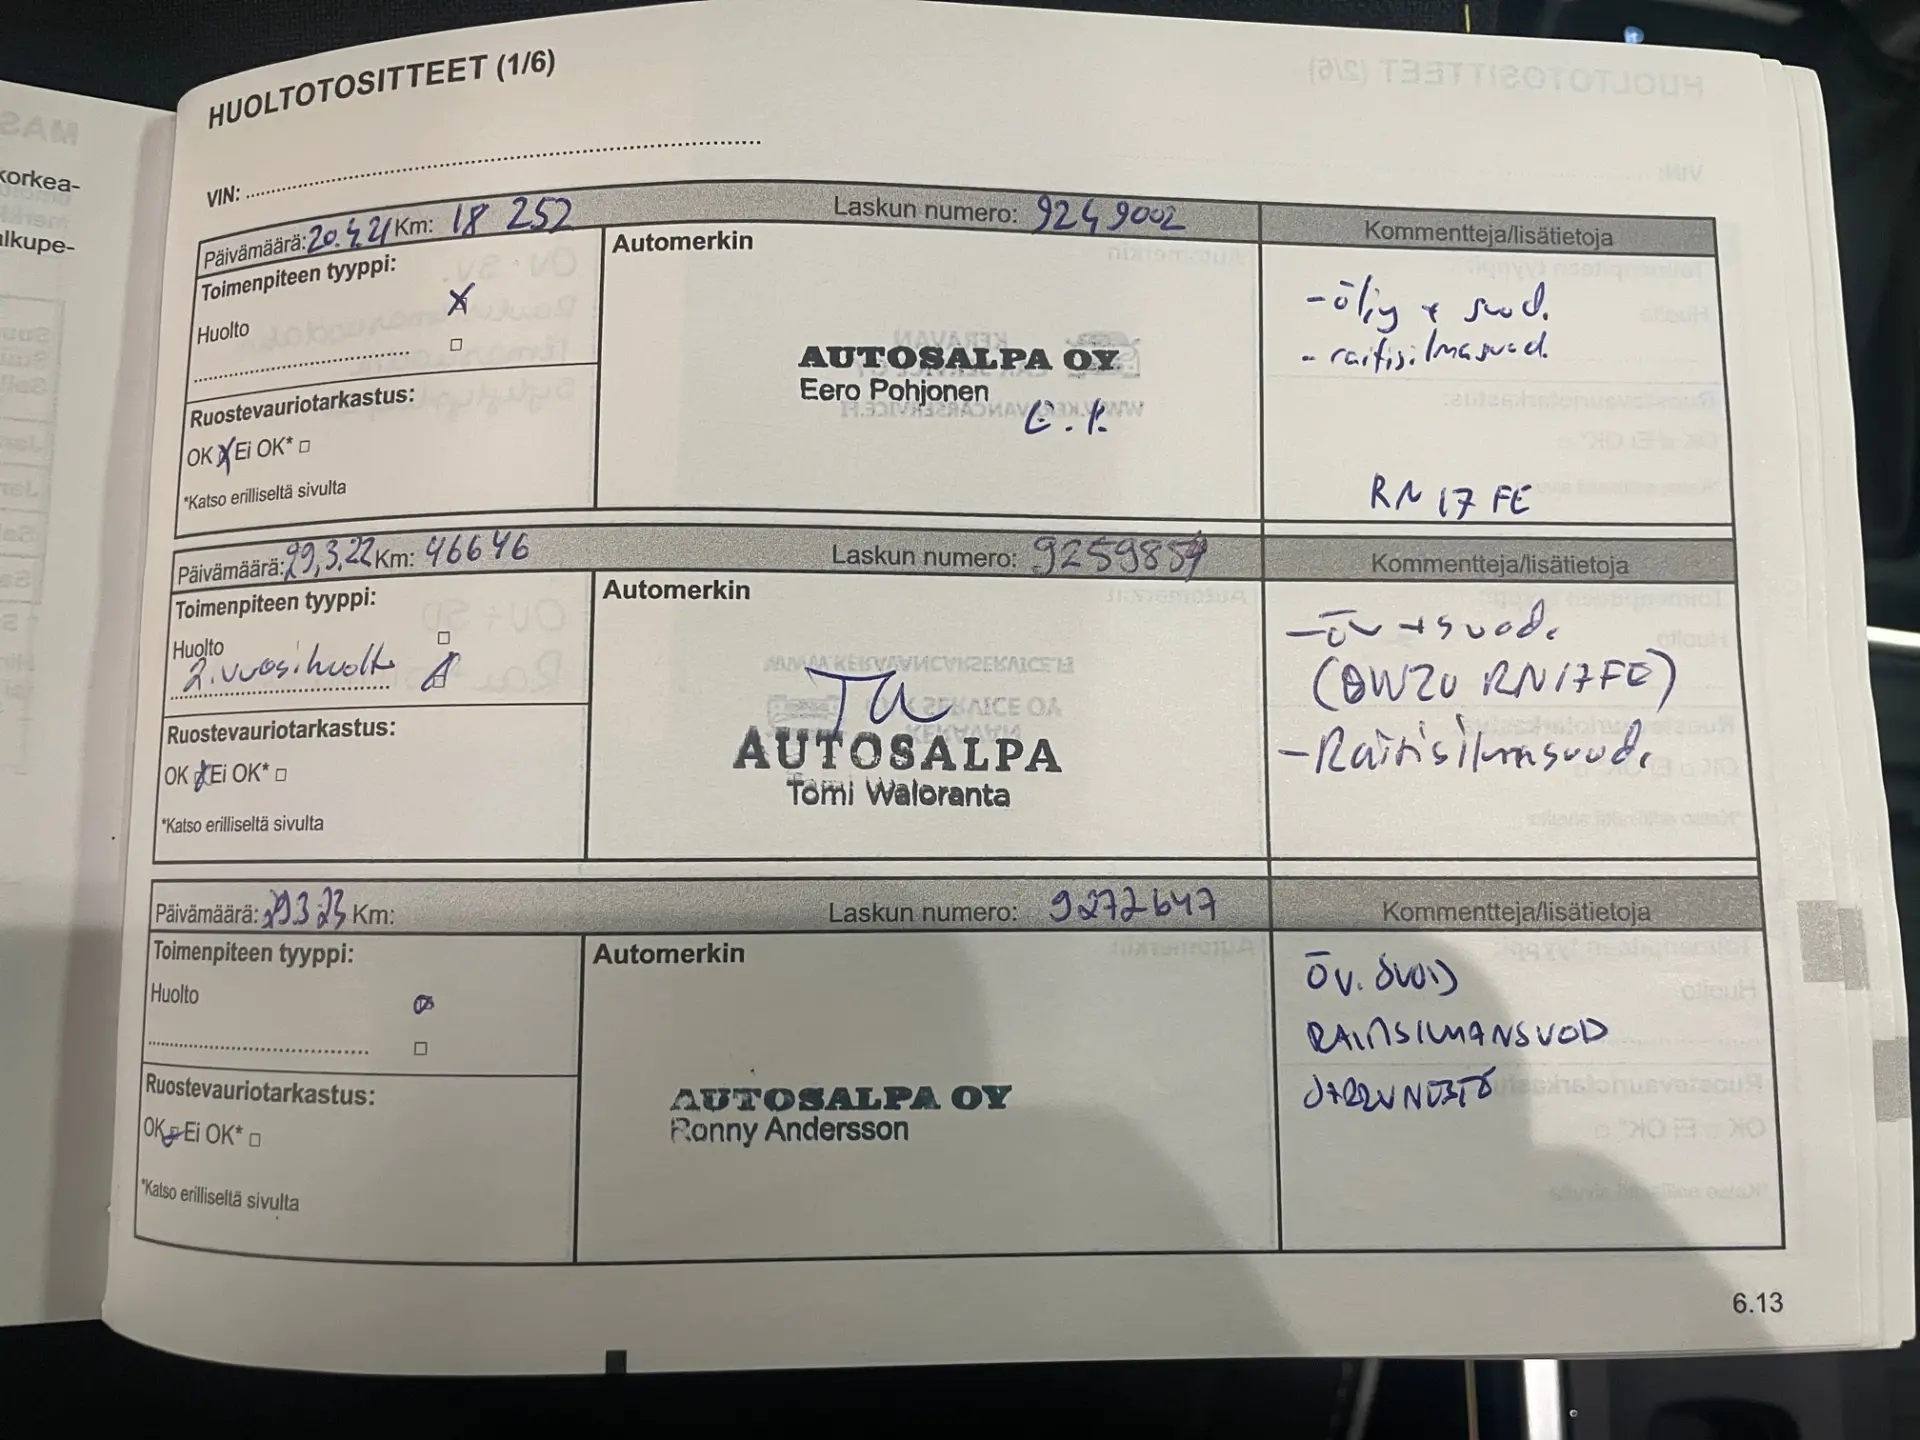 HUOLTOTOSITTEET (1/6)
VIN:
Päivämäärä: 20.4.21 Km: 18 252 Laskun numero: 9249002 Kommentteja/lisätietoja
Toimenpiteen tyyppi:
Huolto
Ruostevauriotarkastus:
OK Ei OK*
*Katso erilliseltä sivulta
Automerkin
AUTOSALPA OY
Eero Pohjonen
E.P.
- öljy + suod.
- raitisilmasuod.
RN 17 FE
Päivämäärä: 29.3.22 Km: 46646 Laskun numero: 9259857 Kommentteja/lisätietoja
Toimenpiteen tyyppi:
Huolto
2. vuosihuolto
Ruostevauriotarkastus:
OK Ei OK*
*Katso erilliseltä sivulta
Automerkin
AUTOSALPA
Tomi Waloranta
- öv + suod.
(0W20 RN17FE)
- Raitisilmasuod.
Päivämäärä: 29 3 23 Km: Laskun numero: 9272647 Kommentteja/lisätietoja
Toimenpiteen tyyppi:
Huolto
Ruostevauriotarkastus:
OK Ei OK*
*Katso erilliseltä sivulta
Automerkin
AUTOSALPA OY
Ronny Andersson
ÖV. SUOD
RAITISILMANSUOD
JARRUNESTE
6.13
MAS
korkea-
alkupe-